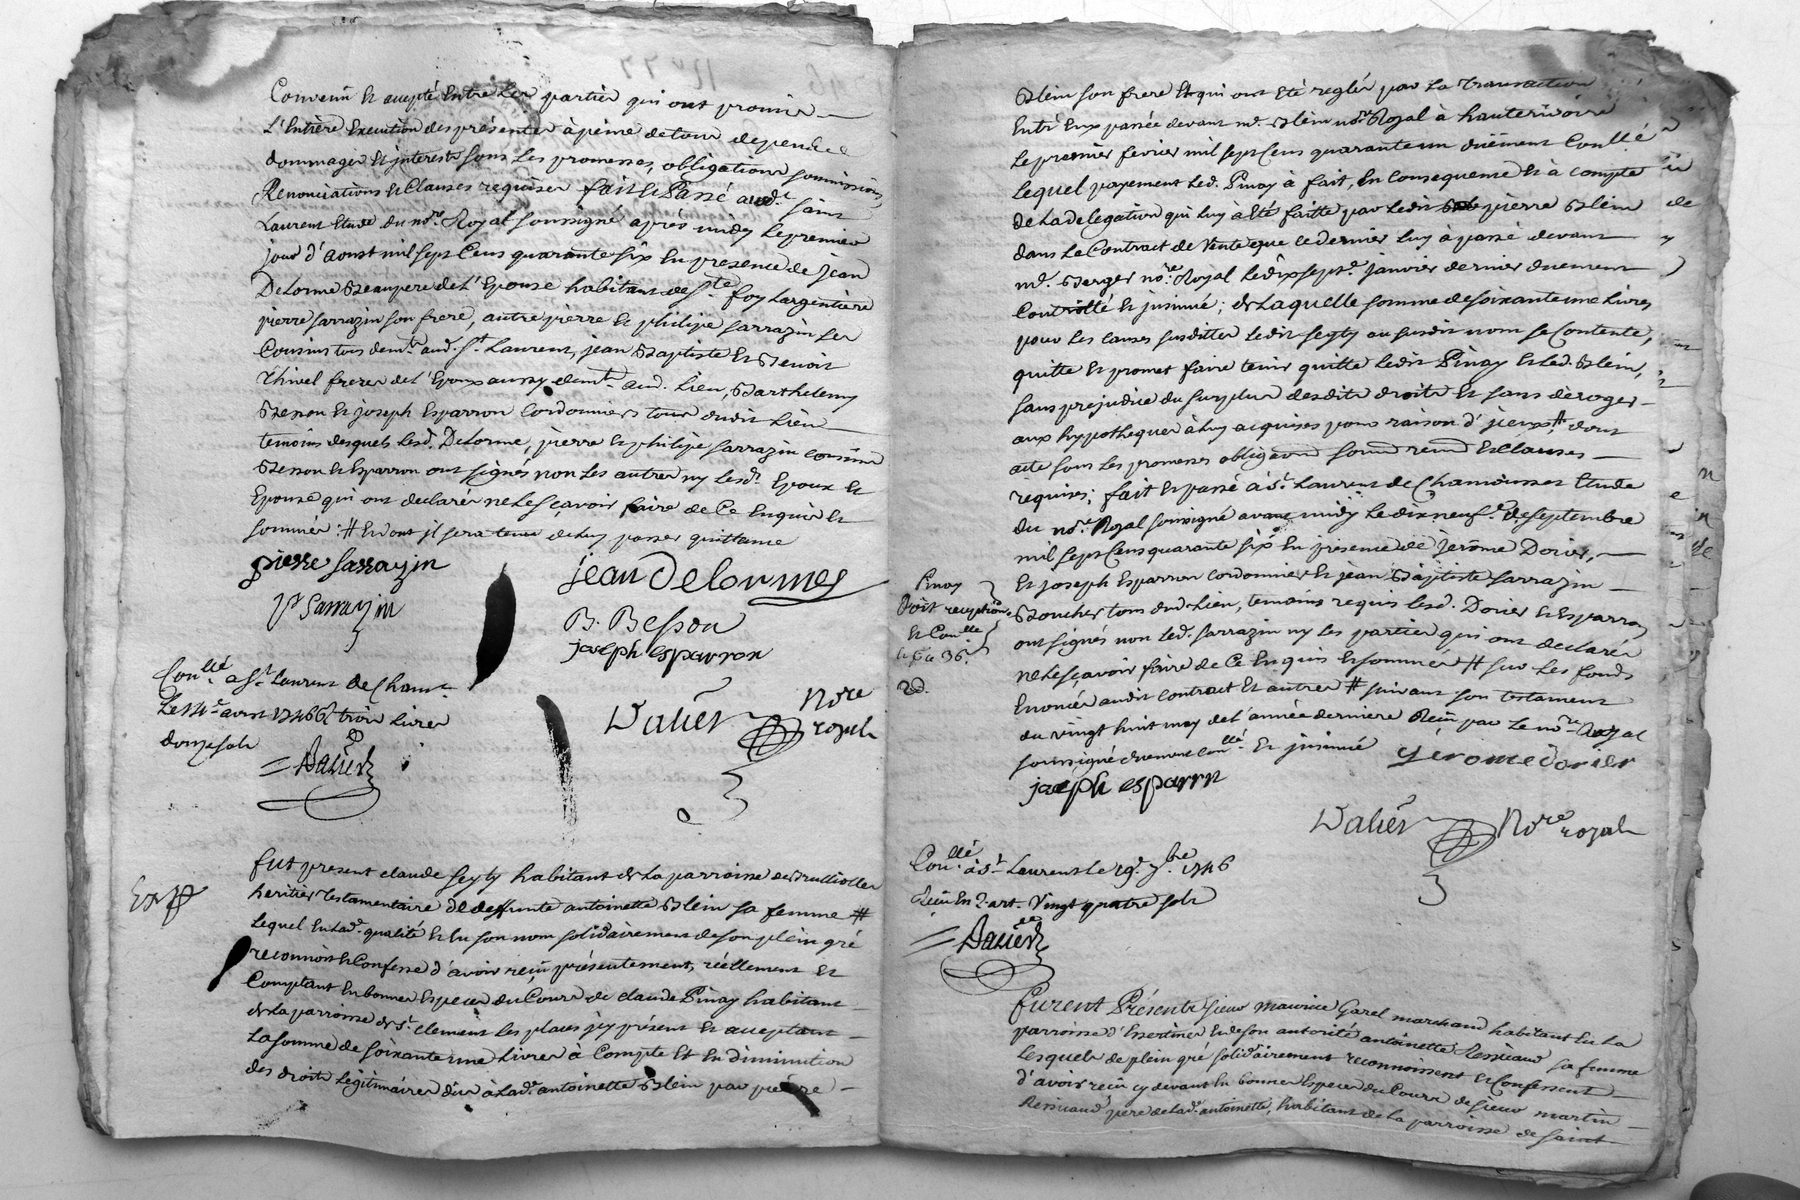 Convenu et accepté Entre Les partier qui ont promis
L'Entière Execution des présentes à peine de tous depends
dommages et interests sous les promesses, obligations soumissions
Renonciations et Clauses requises fait et Passé aud.t saint
Laurent Etude du no.re Royal soussigné après midy le premier
jour d'aoust mil sept Cens quarante six En presence de jean
Delorme Beaupere de L'Epouse habitant de S.te foy Largentiere
pierre sarrazin son frere, autre pierre et philipe sarrazin ses
Cousins tous dem.ts aud. S.t Laurent, jean Baptiste et Benoit
Thivel freres de L'Epoux aussy dem.ts aud. Lieu, Barthelemy
Besson et joseph Esparron Cordonniers tous dudit Lieu
temoins desquels Lesd. Delorme, pierre et philipe sarrazin cousins
Besson et Esparron ont signés non Les autres ny Lesd. Epoux et
Epouse qui ont declarés ne Le sçavoir faire de Ce Enquis et
sommés # et dont il sera tenu de luy passer quittance
pierre sarrazin
jean Delormes
p sarrazin
B. Besson
joseph esparron
Con.llé a S.t Laurent de Cham.t
Le avril 1746 trois Livres
douze sols
Daliér
Dalier No.re royal
Exp
fut present claude Seyty habitant de La parroisse de Brullioles
heritier Testamentaire de deffunte antoinette Blein sa femme #
Lequel En lad. qualité et En son nom solidairement de son plein gré
reconnoit et Confesse d'avoir reçu présentement, réellement et
Comptant En bonnes Especes du Cours de claude Pinay habitant
de La parroisse de S.t Clement les places icy présent et acceptant
La somme de soixante une Livres à Compte et En diminution
des droits Legitimaires dûs à Lad. antoinette Blein par pierre
Blein son frere Et qui ont Eté reglés par La Transaction
Entr'Eux passée devant m.e Blein no.re Royal à hauterivoire
Le premier fevrier mil sept Cens quarante un duëment Con.llé
Lequel payement Led. Pinay à fait, En Consequence et à compte
de La delegation qui Luy à Eté faitte par Ledit pierre Blein
dans Le Contract de Vente que ce dernier Luy à passé devant
m.e Berger no.re Royal Le dix sept.e janvier dernier duement
Controllé et insinué; de Laquelle somme de soixante une Livres
pour les causes susdittes Ledit seyty au susdit nom se Contente,
quitte et promet faire tenir quitte Ledit Pinay et Led. Blein,
sans prejudice du surplus desdits droits et sans déroger
aux hypotheques à Luy acquises pour raison d'iceux # dont
acte sous Les promesses obliga.ons soum.ons renon.ons et Clauses
requises; fait et passé à S.t Laurent de Chamousset Etude
du no.re Royal soussigné avant midy Le dix neuf.e de septembre
mil sept Cens quarante six En presence de Jerôme Dorier,
et joseph Esparron cordonniers et jean Baptiste sarrazin
Boucher tous dud. Lieu, temoins requis Lesd. Dorier et Esparron
ont signés non Led. sarrazin ny les parties qui ont declarés
ne Le sçavoir faire de Ce Enquis et sommés # sur Les fonds
Enoncés audit contract et autres # suivant son testament
du vingt huit may de L'année derniere Reçu par Le no.re Royal
soussigné duement Con.llé et insinué
Pinay
Doit reception
Et Con.lle
yérome dorier
joseph esparrn
Dalier No.re royal
Con.llé à S.t Laurent Le 19.e 7.bre 1746
Reçu En 2 art. Vingt quatre sols
Daliér
Furent Présents Sieur Maurice Garel marchand habitant En La
parroisse d'Essertines et de son autorité antoinette Ressicaud sa femme
Lesquels de plein gré solidairement reconnoissent et Confessent
d'avoir reçu cy devant En bonnes Especes du Cours de sieur martin
Ressicaud pere de Lad. antoinette, habitant de La parroisse de saint